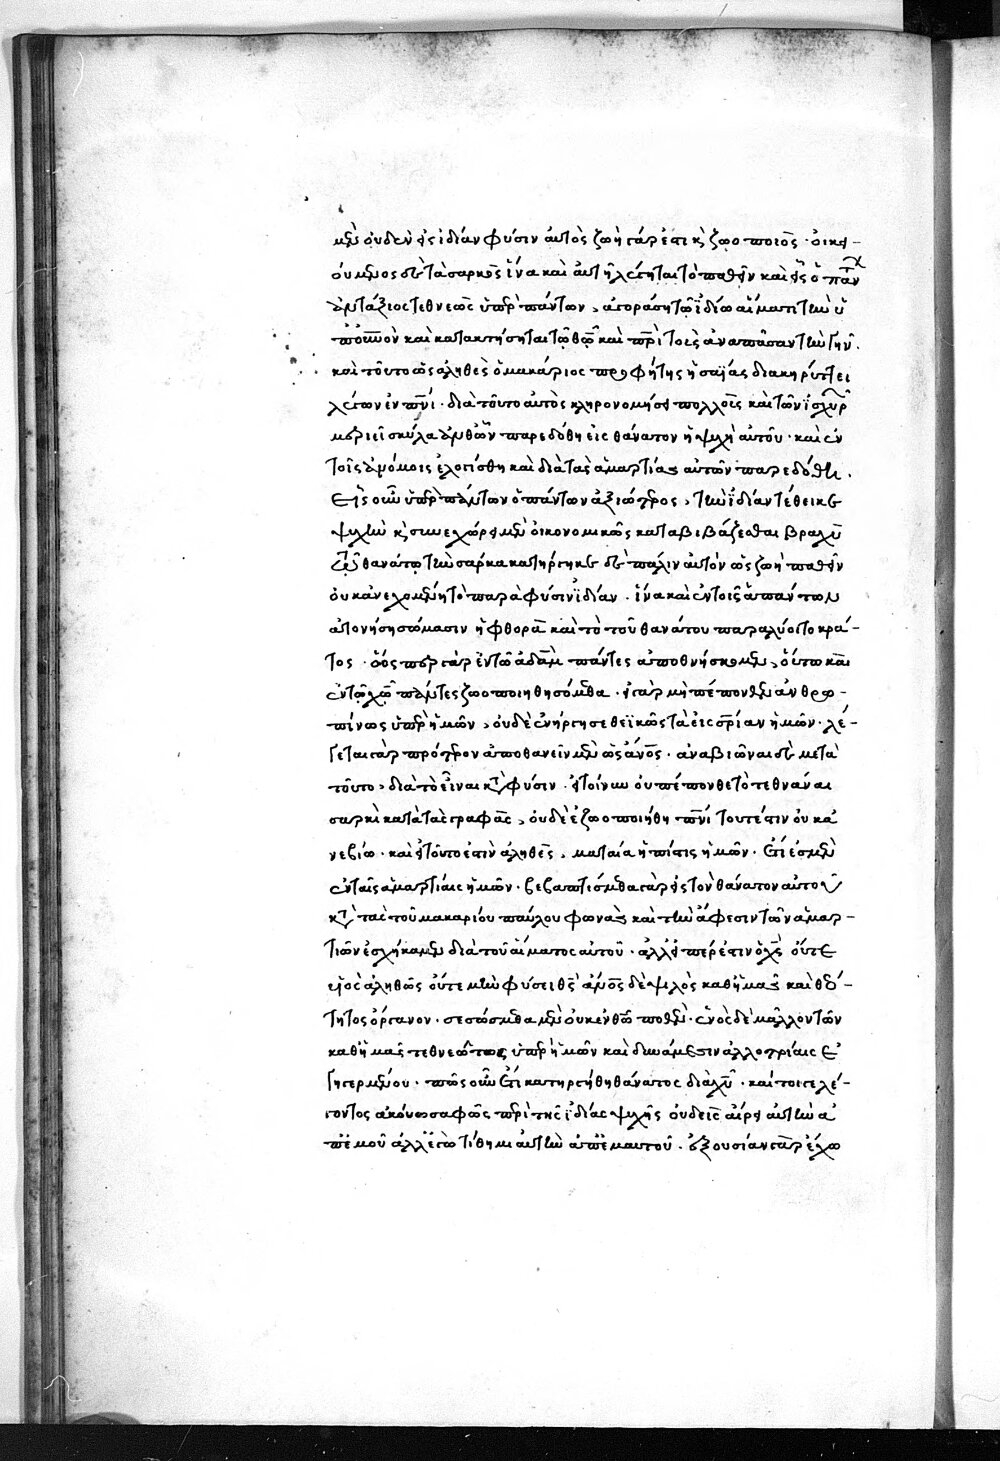 μὲν οὐδὲν εἰς ἰδίαν φύσιν αὐτὸς ζωὴ γάρ ἐστι κ̀ ζωοποιὸς · οἰκει-
ούμενος δὲ τὰ σαρκὸς ἵνα καὶ αὐτὸς λέγηται τὸ παθεῖν καὶ εἷς ὁ πάντων
ἀντάξιος τεθνεὼς ὑπὲρ πάντων, ἀγοράση τῶ ἰδίω αἵματι τὴν ὑ
π οὐνὸν καὶ κατακτήσηται τῶ θῶ καὶ πρὶ τοὺς ἀνὰ πᾶσαν τὴν γῆν.
καὶ τοῦτο ὡς ἀληθὲς ὁ μακάριος προφήτης ἠσαΐας διακηρύττει
λέγων ἐν πνι · διὰ τοῦτο αὐτὸς κληρονομήσει πολλοὺς καὶ τῶν ἰσχυρῶν
μεριεῖ σκύλα ἀνθ' ὧν παρεδόθη εἰς θάνατον ἡ ψυχὴ αὐτοῦ · καὶ ἐν
τοῖς ἀνόμοις ἐλογίσθη καὶ διὰ τὰς ἁμαρτίας αὐτῶν παρεδόθη.
Εἷς οὖν ὑπὲρ πάντων ὁ πάντων ἀξιώτερος, τὴν ἰδίαν τέθεικε
ψυχὴν κ̀ συνεχώρει μὲν οἰκονομικῶς καταβιβάζεσθαι βραχὺ
τῶ θανάτω τὴν σάρκα κατήργηκε δὲ πάλιν αὐτὸν ὡς ζωὴ παθεῖν
οὐκ ἀνεχομένη τὸ παρὰ φύσιν ἰδίαν · ἵνα καὶ ἐν τοῖς ἁπάντων
ἀτονήση σώμασιν ἡ φθορὰ καὶ τὸ τοῦ θανάτου παραλύοιτο κρά-
τος · ὥσπερ γὰρ ἐν τῶ ἀδὰμ πάντες ἀποθνήσκομεν, οὕτω καὶ
ἐν τῶ χῶ πάντες ζωοποιηθησόμεθα · εἰ γὰρ μὴ πέπονθεν ἀνθρω-
πίνως ὑπὲρ ἡμῶν, οὐδὲ ἐνήργησε θεϊκῶς τὰ εἰς σρίαν ἡμῶν · λέ-
γεται γὰρ πρότερον ἀποθανεῖν μὲν ὡς ἄνος · ἀναβιῶναι δὲ μετὰ
τοῦτο, διὰ τὸ εἶναι κατὰ φύσιν · εἰ τοίνυν οὐ πέπονθε τὸ τεθνάναι
σαρκὶ κατὰ τὰς γραφὰς, οὐδὲ ἐζωοποιήθη πνι τουτέστιν οὐκ ἀ
νεβίω · καὶ εἰ τοῦτό ἐστὶν ἀληθὲς, ματαία ἡ πίστις ἡμῶν · ἔτι ἐσμὲν
ἐν ταῖς ἁμαρτίαις ἡμῶν · βεβαπτίσμεθα γὰρ εἰς τὸν θάνατον αὐτοῦ
κατὰ τὰς τοῦ μακαρίου παύλου φωνὰς καὶ τὴν ἄφεσιν τῶν ἁμαρ-
τιῶν ἐσχήκαμεν διὰ τοῦ αἵματος αὐτοῦ · ἀλλ' εἴπερ ἐστὶν ὁ χς οὔτε
υἱὸς ἀληθῶς οὔτε μὴν φύσει θς ἄνος δὲ ψιλὸς καθ' ἡμᾶς καὶ θεό-
τητος ὄργανον · σεσώσμεθα μὲν οὐκ ἐν θῶ πόθεν · ἑνὸς δὲ μᾶλλον τῶν
καθ' ἡμᾶς τεθνεῶτος ὑπὲρ ἡμῶν καὶ δυνάμεσιν ἀλλοτρίαις ἐ
γηγερμένου · πῶς οὖν ἔτι κατηργήθη θάνατος διὰ χῦ · καίτοι γε λέ-
γοντος ἀκούω σαφῶς περὶ τῆς ἰδίας ψυχῆς οὐδεὶς αἴρει αὐτὴν ἀ
π' ἐμοῦ ἀλλ' ἐγὼ τίθημι αὐτὴν ἀπ' ἐμαυτοῦ · ἐξουσίαν γὰρ ἔχω